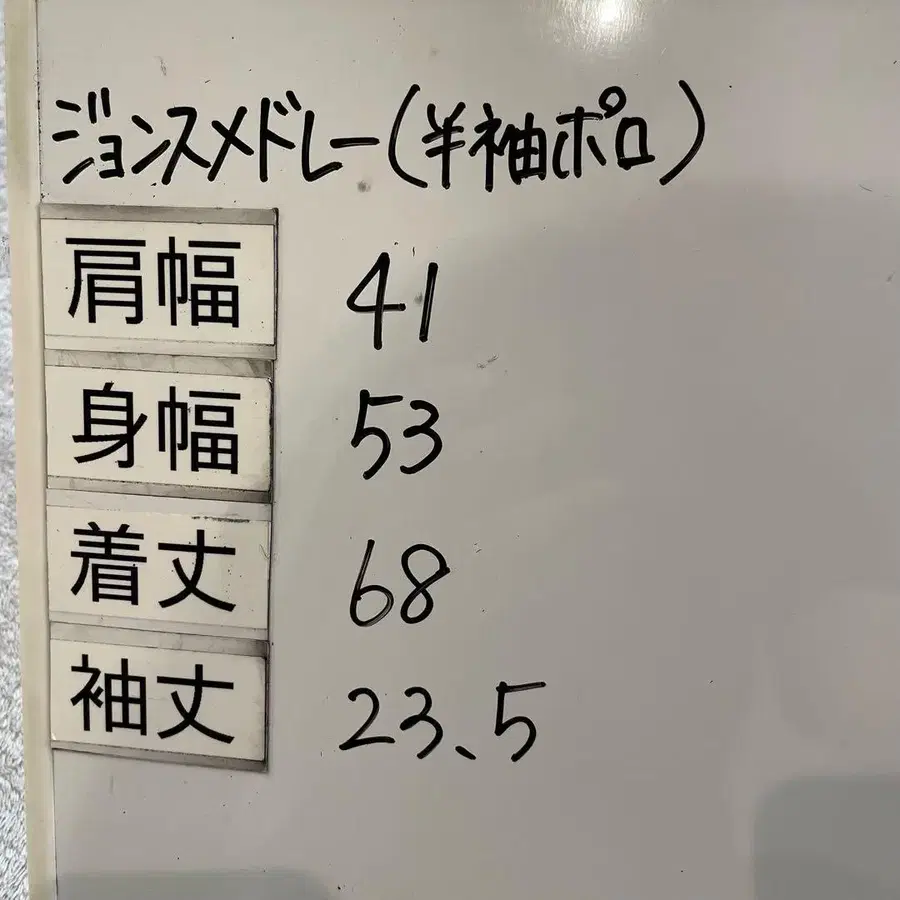 ジョンスメドレー(半袖ポロ)
肩幅 41
身幅 53
着丈 68
袖丈 23、5